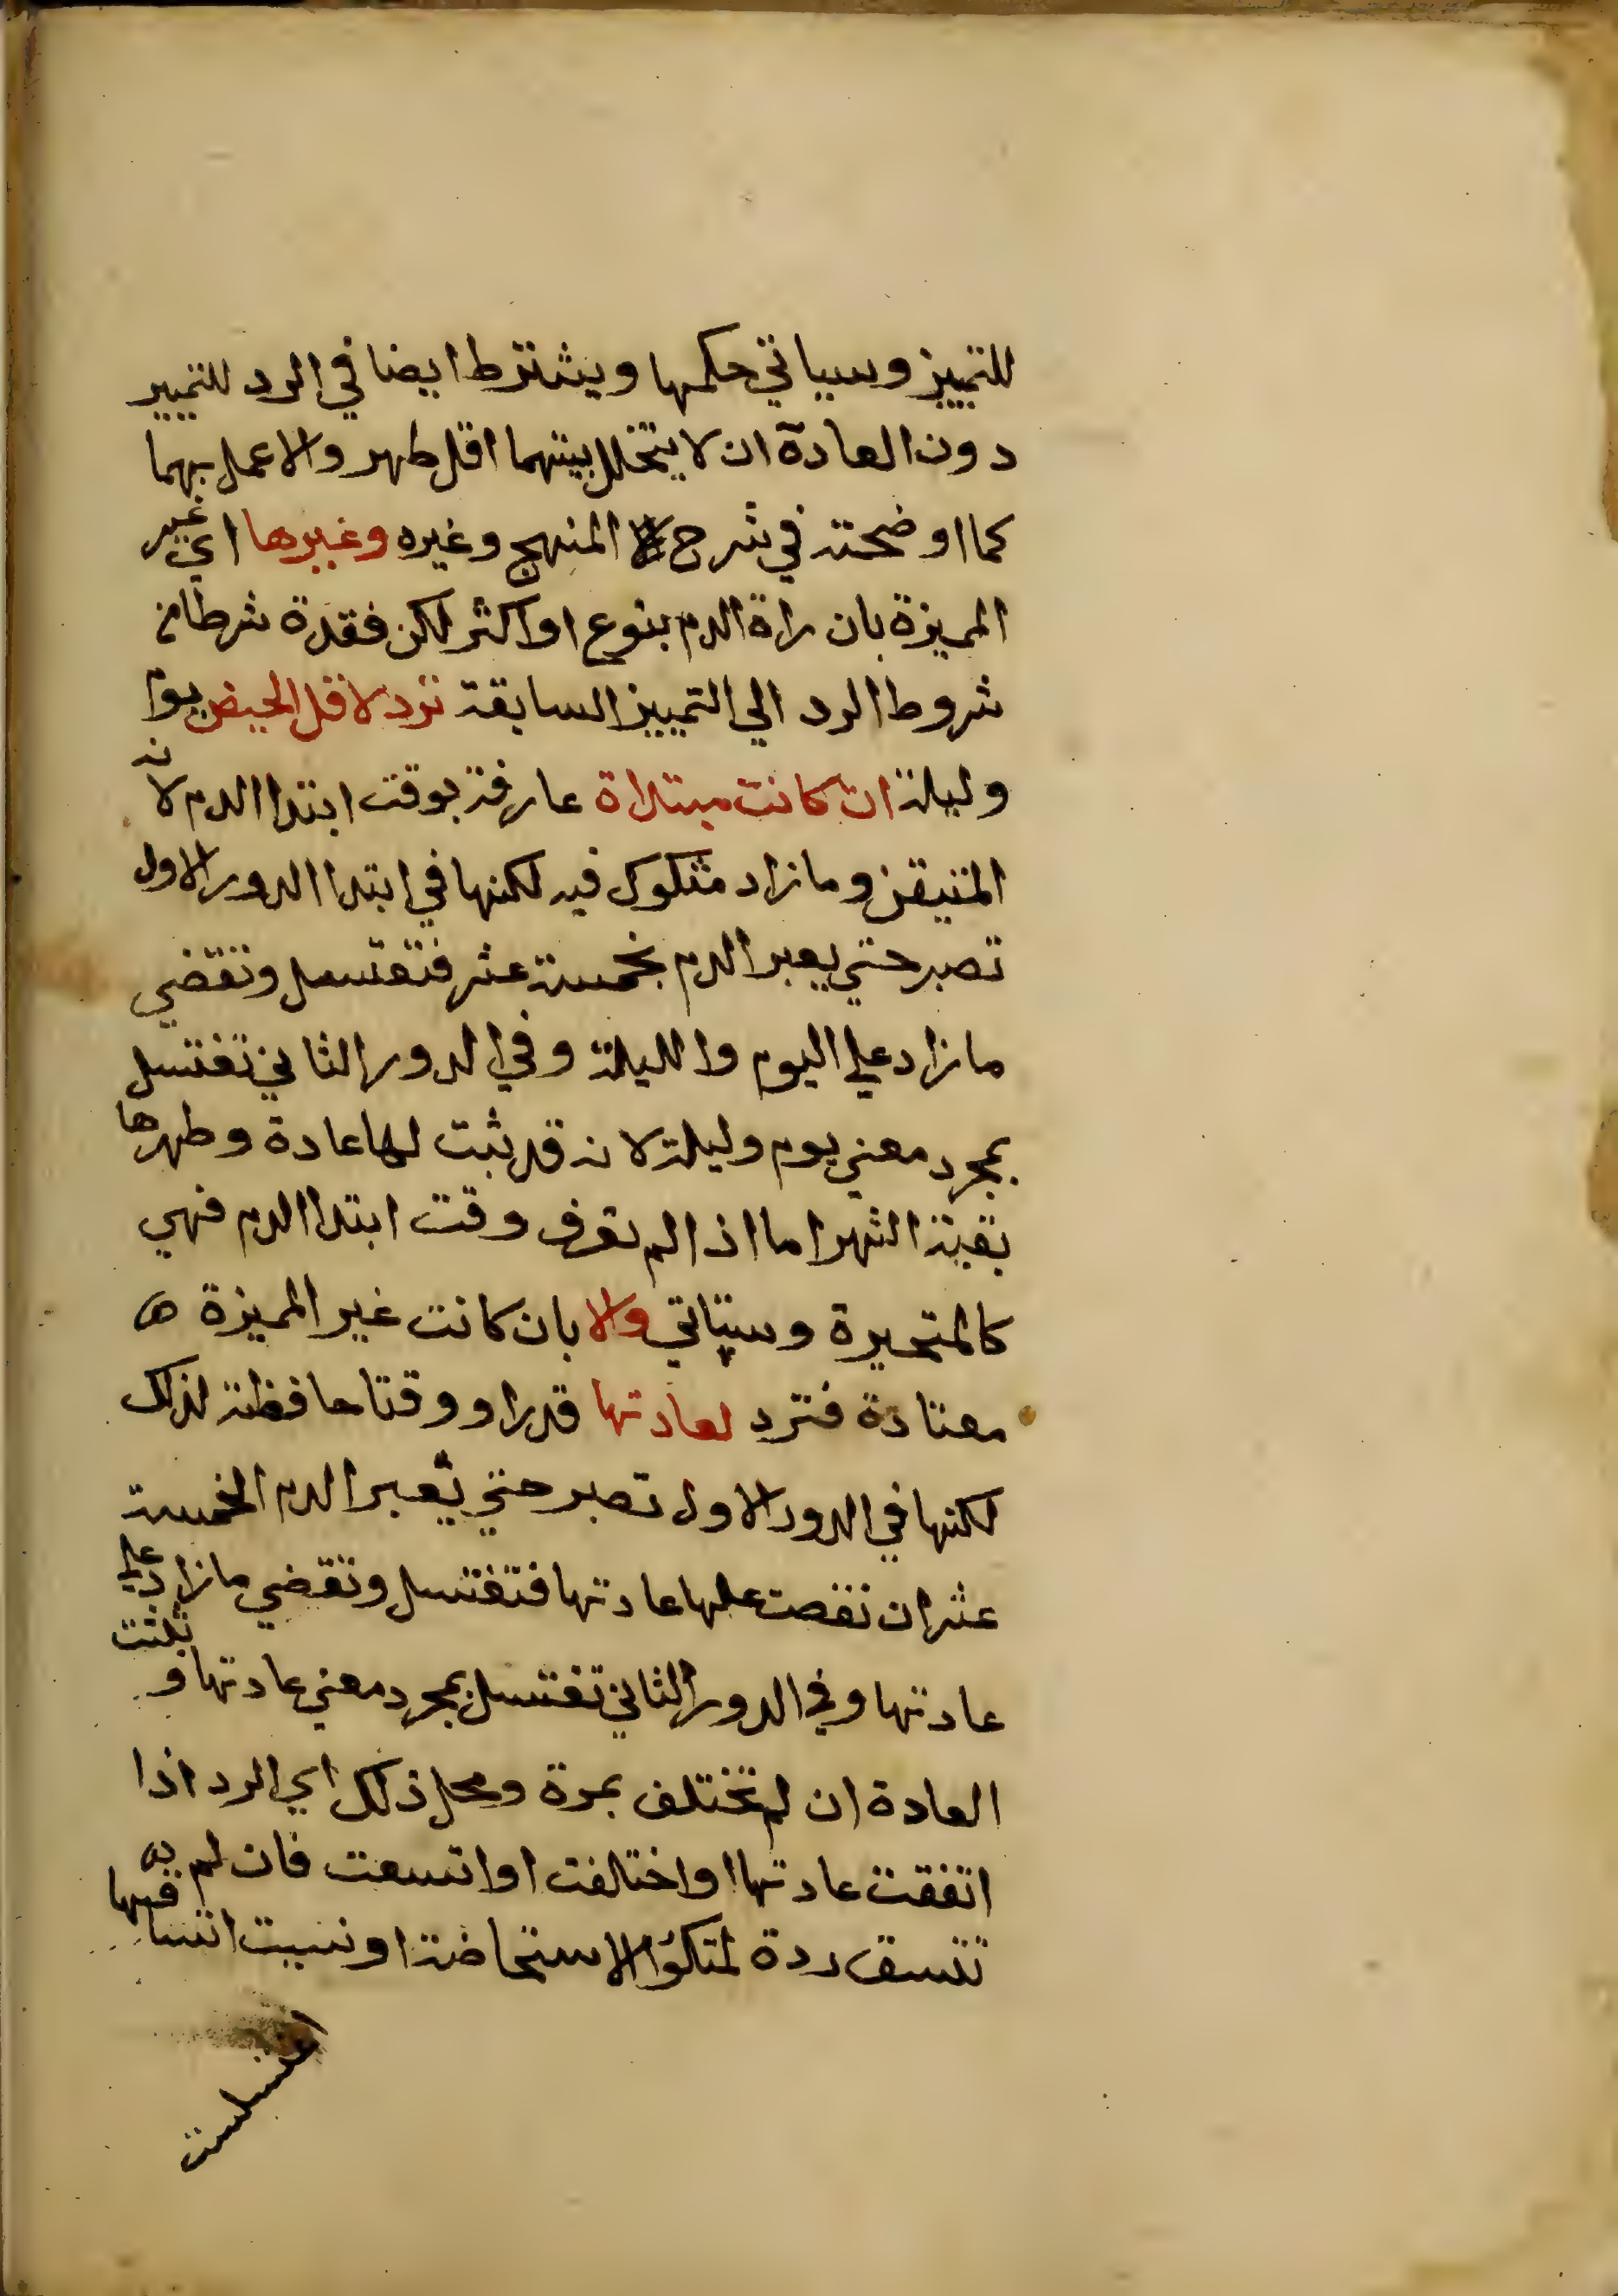 للتمييز وسياتي حكمها ويشترط ايضا في الرد للتمييز
دون العادة ان لا يتخلل بينهما اقل طهر والا عمل بهما
كما اوضحته في شرح المنهج وغيره وغيرها اي غير
المميزة بان راة الدم بنوع او اكثر لكن فقدة شرطا من
شروط الرد الي التمييز السابقة ترد لاقل الحيض يوما
وليلة ان كانت مبتداة عارفة بوقت ابتدا الدم لانه
المتيقن وما زاد مشكوك فيه لكنها في ابتدا الدور الاول
تصبر حتي يعبر الدم بخمسة عشر فتغتسل وتقضي
ما زاد علي اليوم والليلة وفي الدور الثاني تغتسل
بمجرد مضي يوم وليلة لانه قد ثبت لها عادة وطهرها
بقية الشهر اما اذا لم تعرف وقت ابتدا الدم فهي
كالمتحيرة وستاتي والا بان كانت غير المميزة
معتادة فترد لعادتها قدرا ووقتا حافظة لذلك
لكنها في الدور الاول تصبر حتي يعبر الدم الخمسة
عشر ان نقصت عليها عادتها فتغتسل وتقضي ما زاد علي
عادتها وفي الدور الثاني تغتسل بمجرد مضي عادتها وثبتت
العادة ان لم تختلف بمرة ومحل ذلك اي الرد اذا
اتفقت عادتها او اختلفت او اتسقت فان لم
تتسق ردة الاستحاضة او نسيت اتساقها